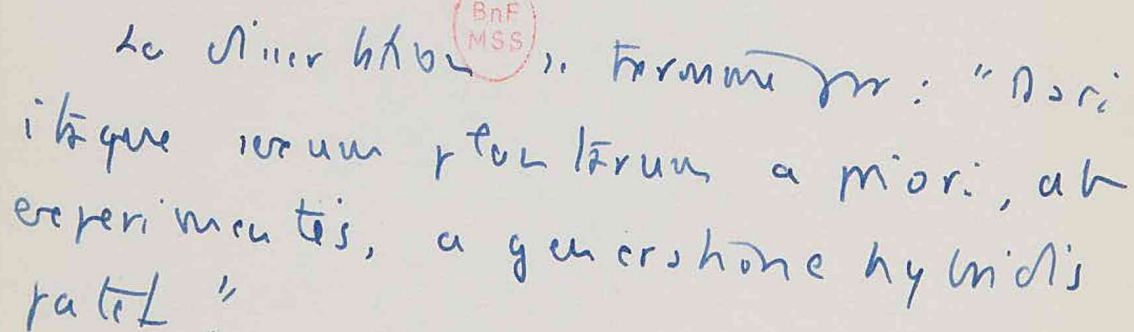 BnF
MSS
La dissertation se termine par : "Dari
itaque sexum plantarum a priori, ab
experimentis, a generatione hybridis
patet"